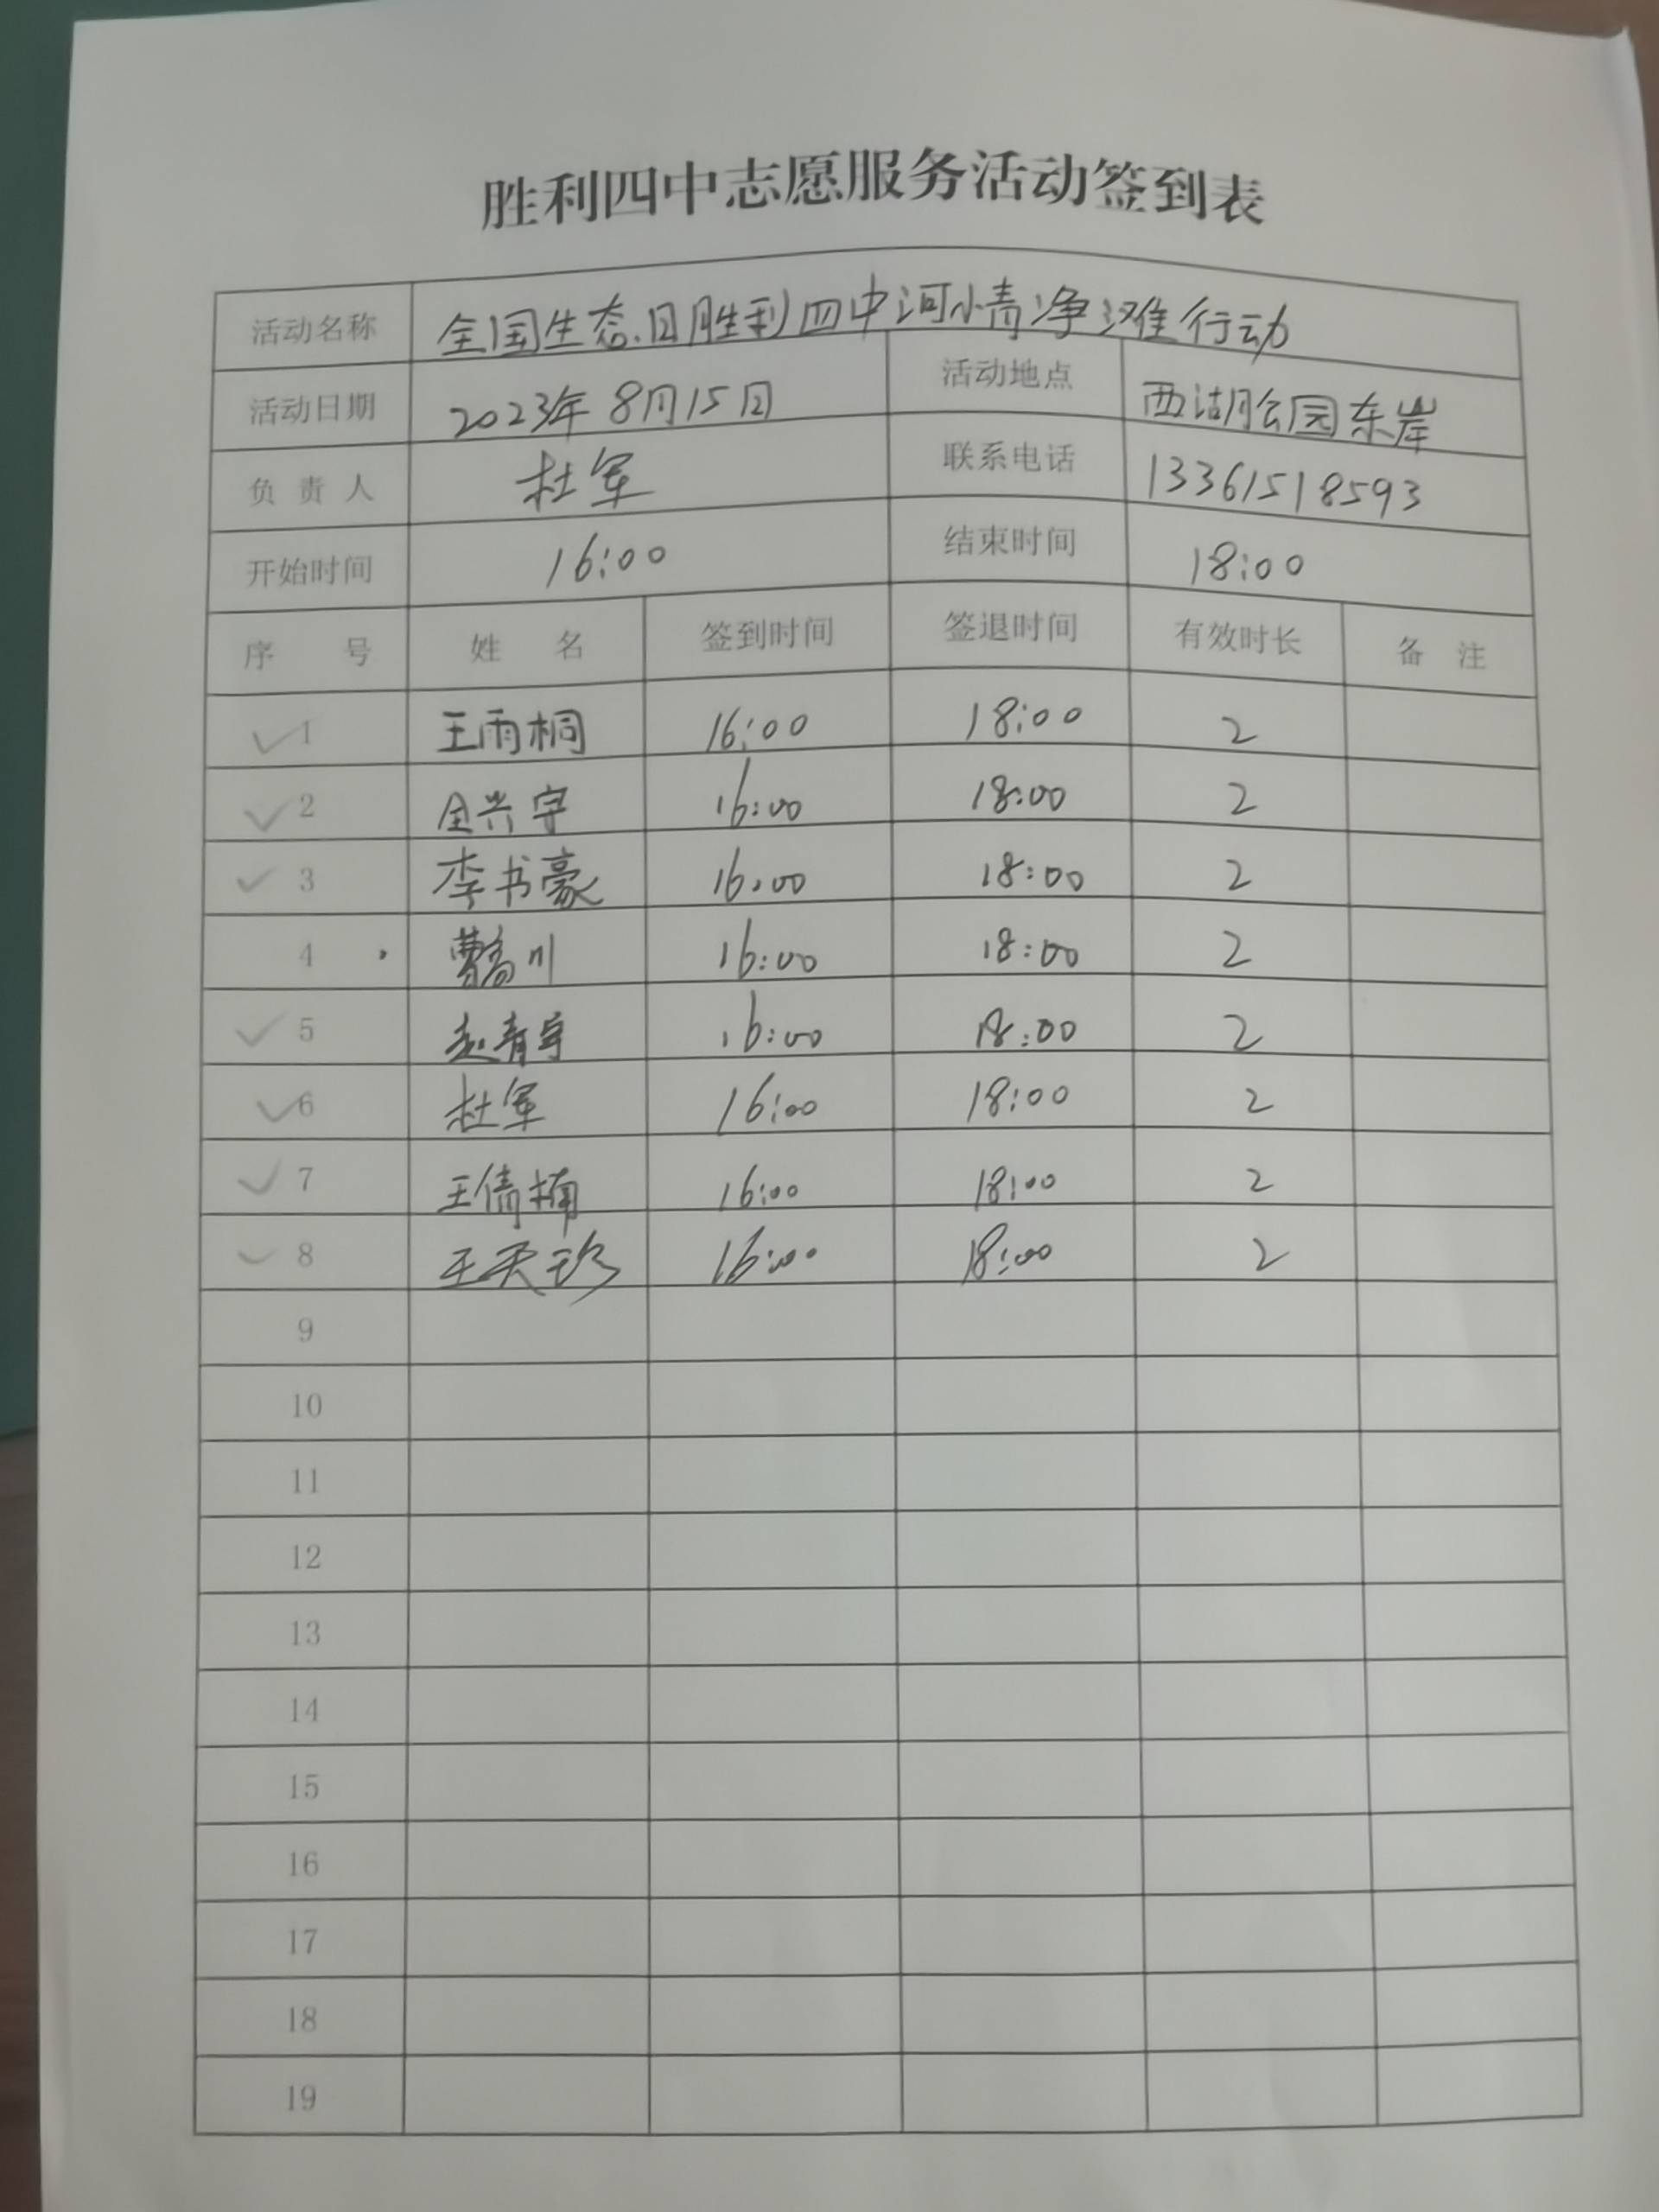 胜利四中志愿服务活动签到表
活动名称 全国生态日胜利四中河小青净滩行动
活动日期 2023年8月15日 活动地点 西湖公园东岸
负责人 杜军 联系电话 13361518593
开始时间 16:00 结束时间 18:00
序号 姓名 签到时间 签退时间 有效时长 备注
1 王雨桐 16:00 18:00 2
2 兴宇 16:00 18:00 2
3 李书豪 16:00 18:00 2
4 曹 川 16:00 18:00 2
5 赵青宇 16:00 18:00 2
6 杜军 16:00 18:00 2
7 王倩楠 16:00 18:00 2
8 王天珍 16:00 18:00 2
9
10
11
12
13
14
15
16
17
18
19